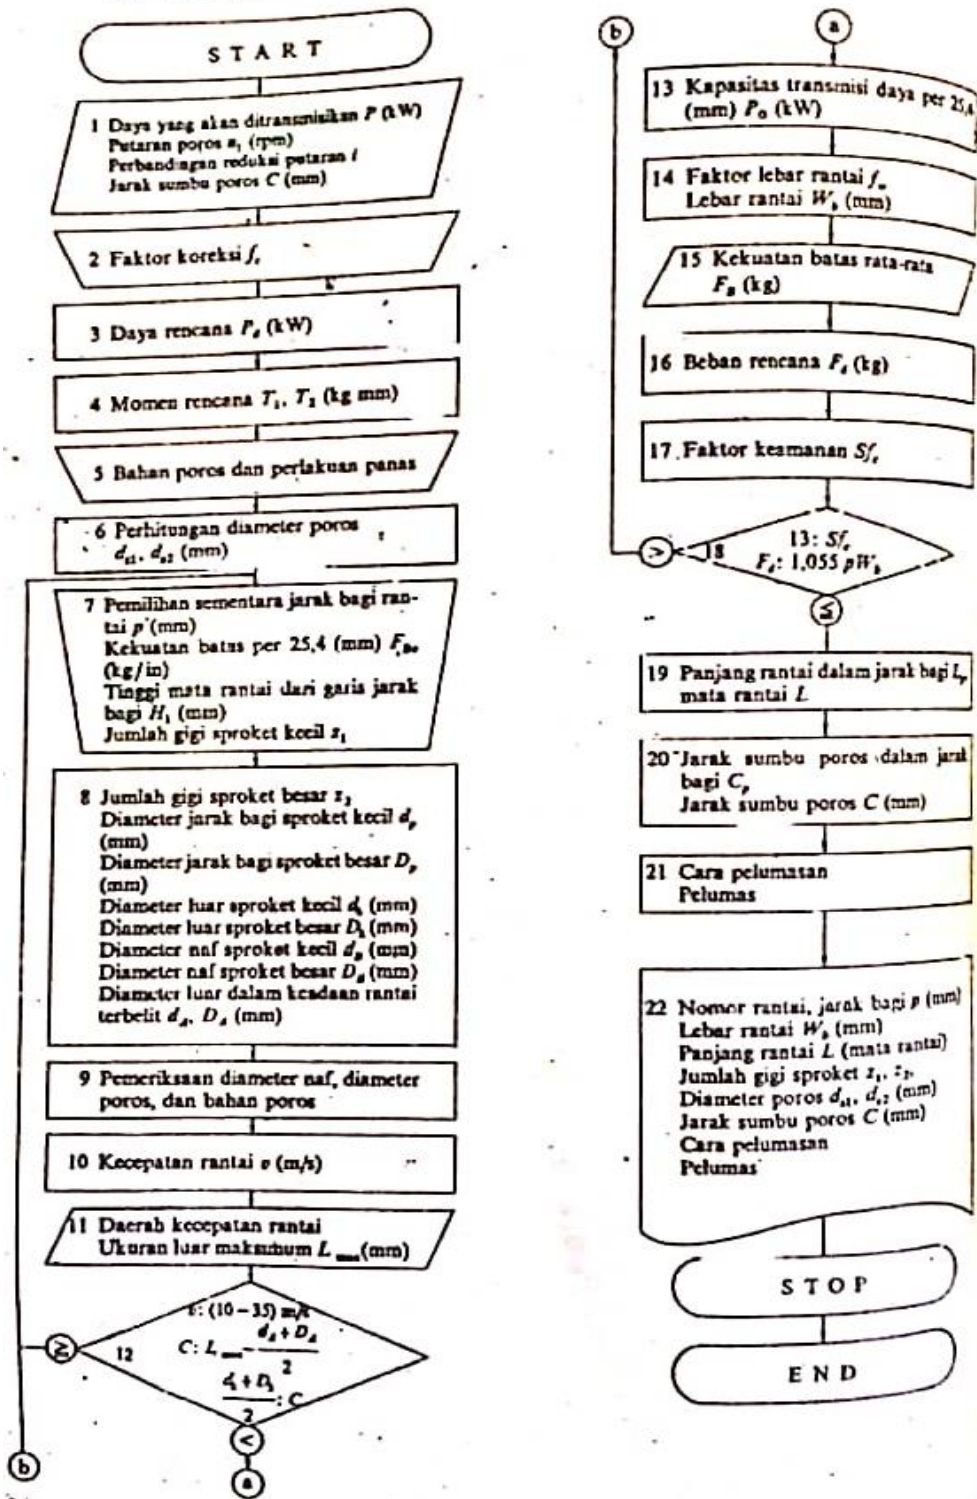 START
1 Daya yang akan ditransmisikan P (kW)
Putaran poros n₁ (rpm)
Perbandingan reduksi putaran i
Jarak sumbu poros C (mm)
2 Faktor koreksi f_c
3 Daya rencana P_d (kW)
4 Momen rencana T₁, T₂ (kg mm)
5 Bahan poros dan perlakuan panas
6 Perhitungan diameter poros
d_s1, d_s2 (mm)
7 Pemilihan sementara jarak bagi ran-
tai p (mm)
Kekuatan batas per 25,4 (mm) F_Bo
(kg/in)
Tinggi mata rantai dari garis jarak
bagi H₁ (mm)
Jumlah gigi sproket kecil z₁
8 Jumlah gigi sproket besar z₂
Diameter jarak bagi sproket kecil d_p
(mm)
Diameter jarak bagi sproket besar D_p
(mm)
Diameter luar sproket kecil d_k (mm)
Diameter luar sproket besar D_k (mm)
Diameter naf sproket kecil d_B (mm)
Diameter naf sproket besar D_B (mm)
Diameter luar dalam keadaan rantai
terbelit d_A, D_A (mm)
9 Pemeriksaan diameter naf, diameter
poros, dan bahan poros
10 Kecepatan rantai v (m/s)
11 Daerah kecepatan rantai
Ukuran luar maksimum L_max (mm)
v: (10 – 35) m/s
≥
12
C: L_max - (d_A + D_A)/2
(d_k + D_k)/2 : C
<
b
a
b
a
13 Kapasitas transmisi daya per 25,4
(mm) P₀ (kW)
14 Faktor lebar rantai f_w
Lebar rantai W_b (mm)
15 Kekuatan batas rata-rata
F_B (kg)
16 Beban rencana F_d (kg)
17 Faktor keamanan Sf_c
13: Sf_c
> 18
F_d: 1,055 pW_b
≤
19 Panjang rantai dalam jarak bagi L_p
mata rantai L
20 Jarak sumbu poros dalam jarak
bagi C_p
Jarak sumbu poros C (mm)
21 Cara pelumasan
Pelumas
22 Nomor rantai, jarak bagi p (mm)
Lebar rantai W_b (mm)
Panjang rantai L (mata rantai)
Jumlah gigi sproket z₁, z₂,
Diameter poros d_s1, d_s2 (mm)
Jarak sumbu poros C (mm)
Cara pelumasan
Pelumas
STOP
END